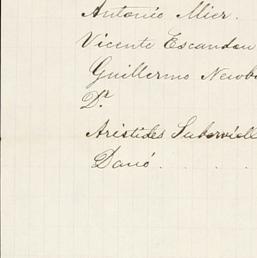 Antonio Mier.
Vicente Escandon
Guillermo Newbo
Dr.
Aristides
Danó . . . .